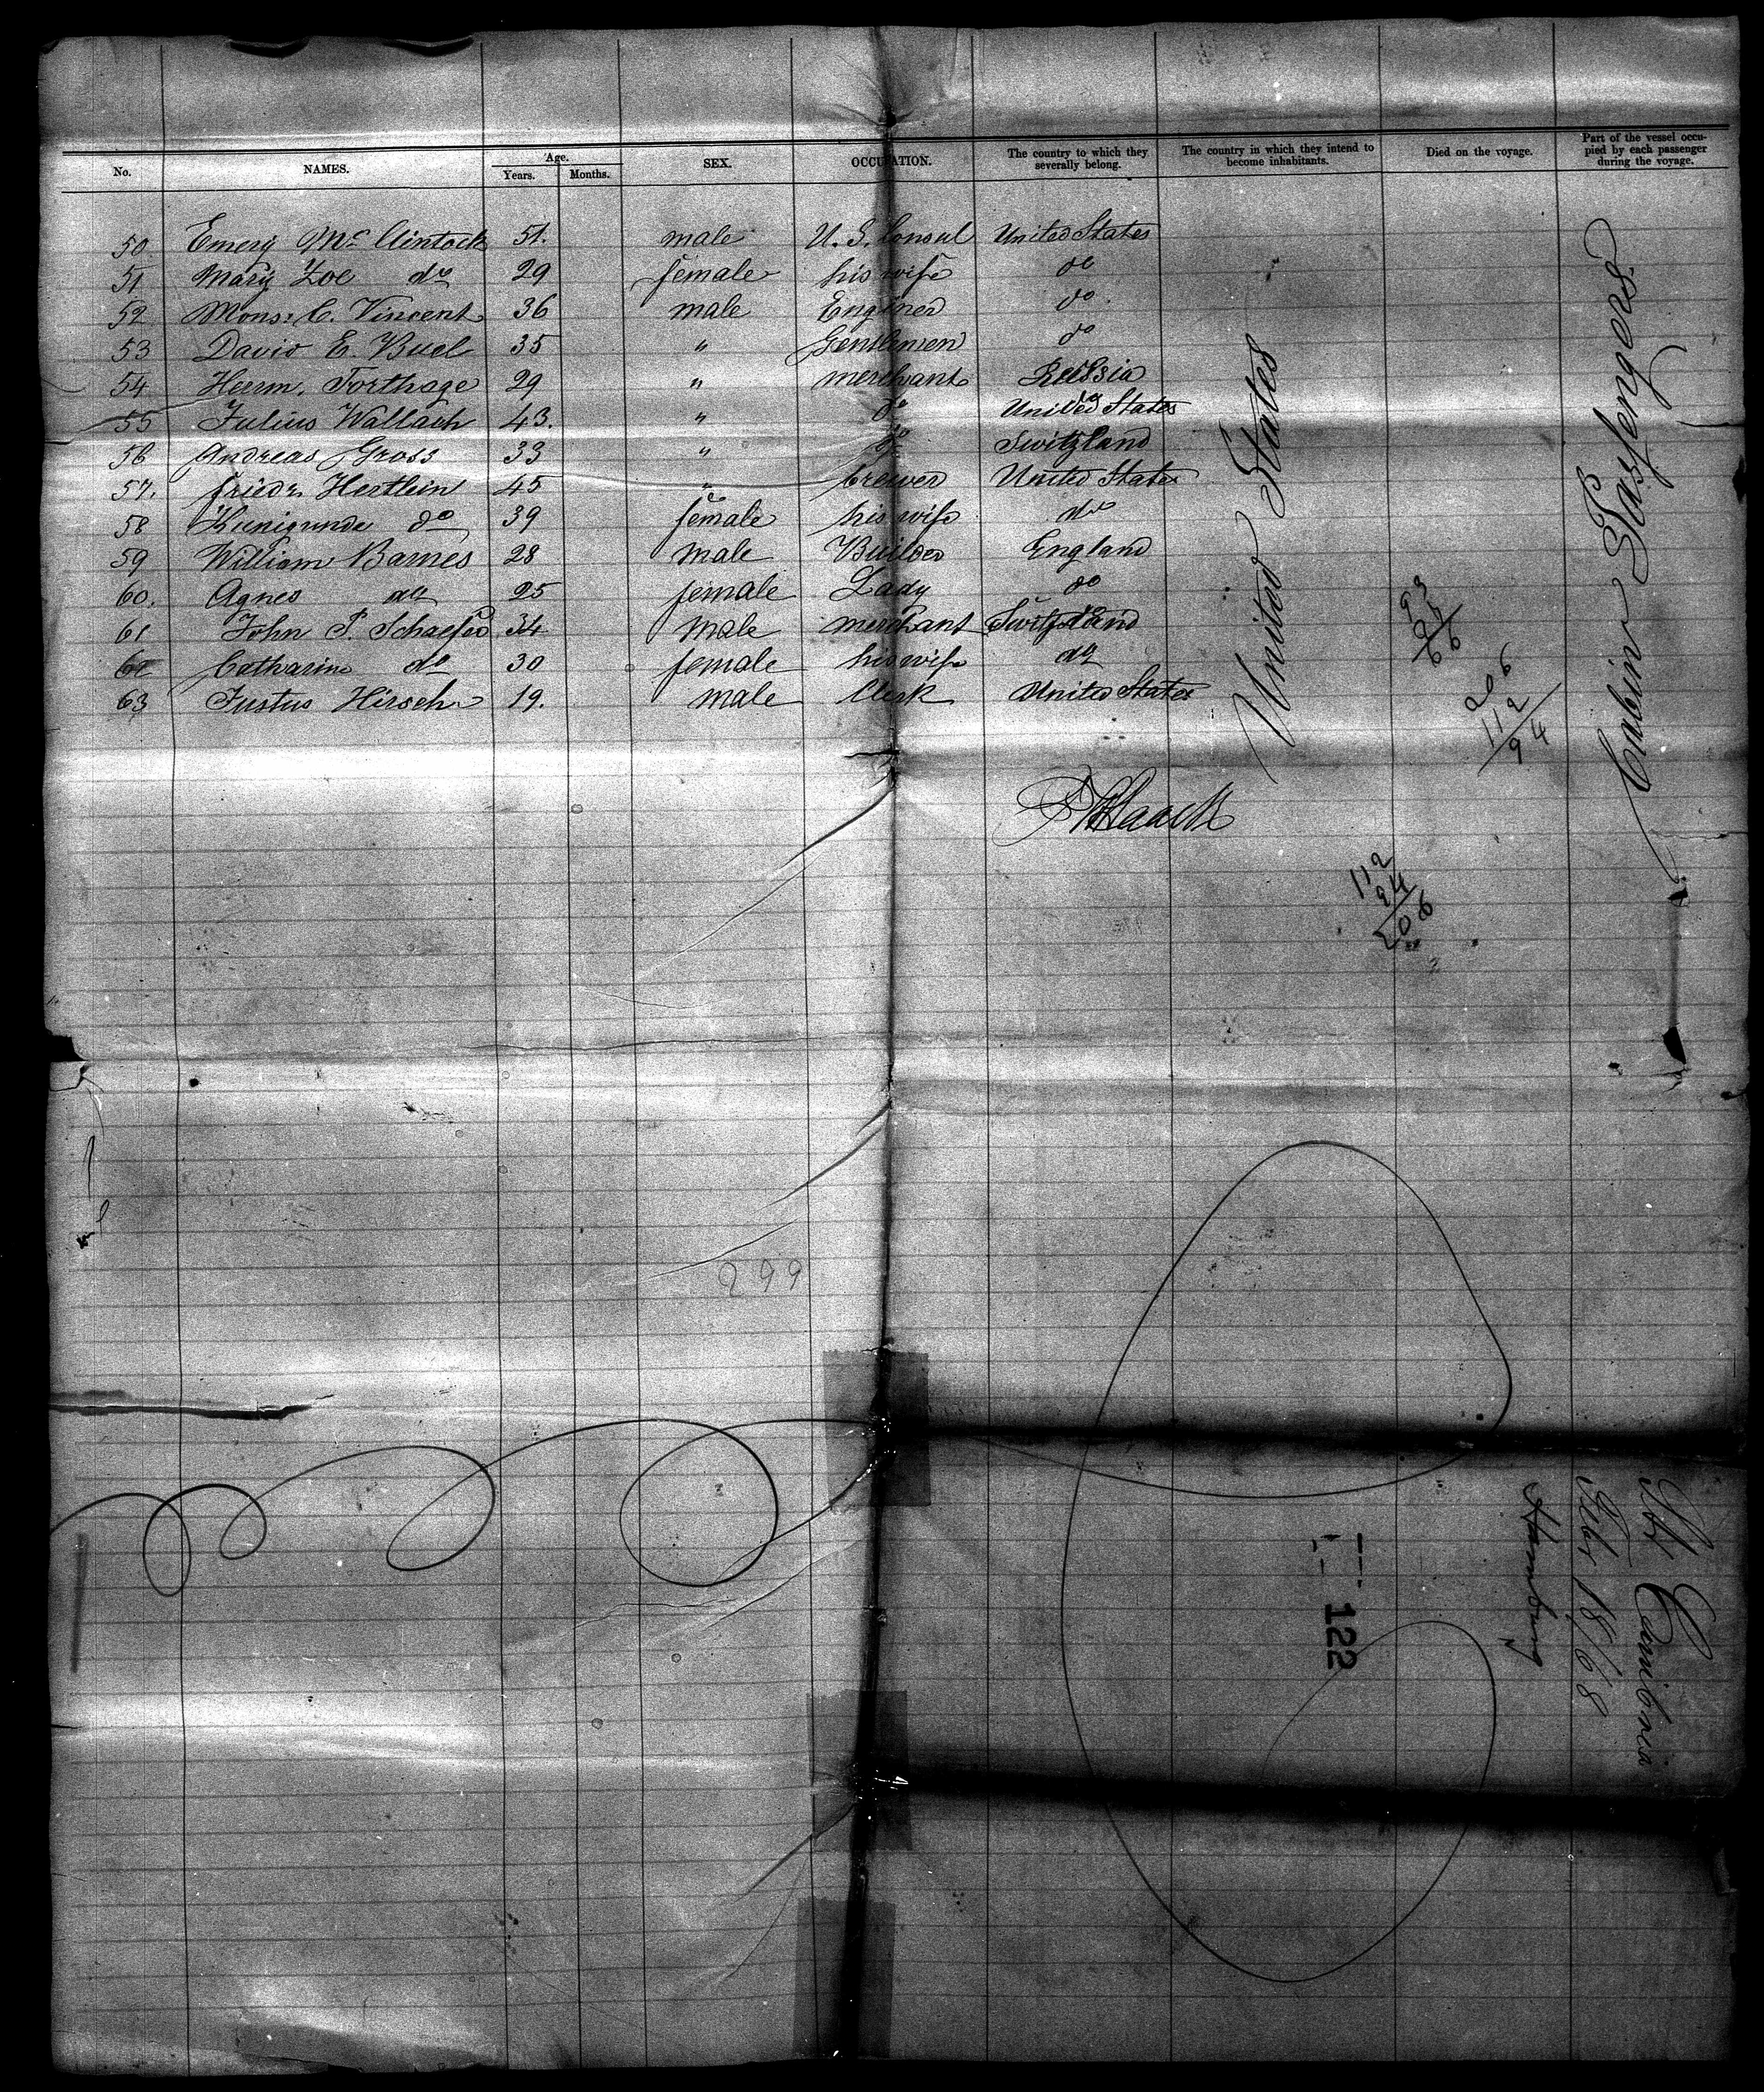 No. NAMES. Age. Years. Months. SEX. OCCUPATION. The country to which they severally belong. The country in which they intend to become inhabitants. Died on the voyage. Part of the vessel occupied by each passenger during the voyage.
50. Emery Mc Clintock 51. male U. S. Consul United States
51 Mary Zoe do 29 female his wife do
52 Mons: C. Vincent 36 male Engineer do.
53 David E. Buel 35 " Gentlemen do
54 Herm. Forthage 29 " merchant Russia
55 Julius Wallach 43. " do United States
56 Andreas Gross 33 " do Switzland
57. Friedr. Hertlein 45 " brewer United States
58 Kunigunde do 39 female his wife do
59 William Barnes 28 male Builder England
60. Agnes do 25 female Lady do
61 John P. Schaefer 34 male merchant Switzland
62 Catharine do 30 female his wife do
63 Justus Hirsch 19. male Clerk United States
United States
Cabin Passengers.
206
112
94
Haack
112
94
206
299
122
Str Cambria
Febr 18/68
Hamburg